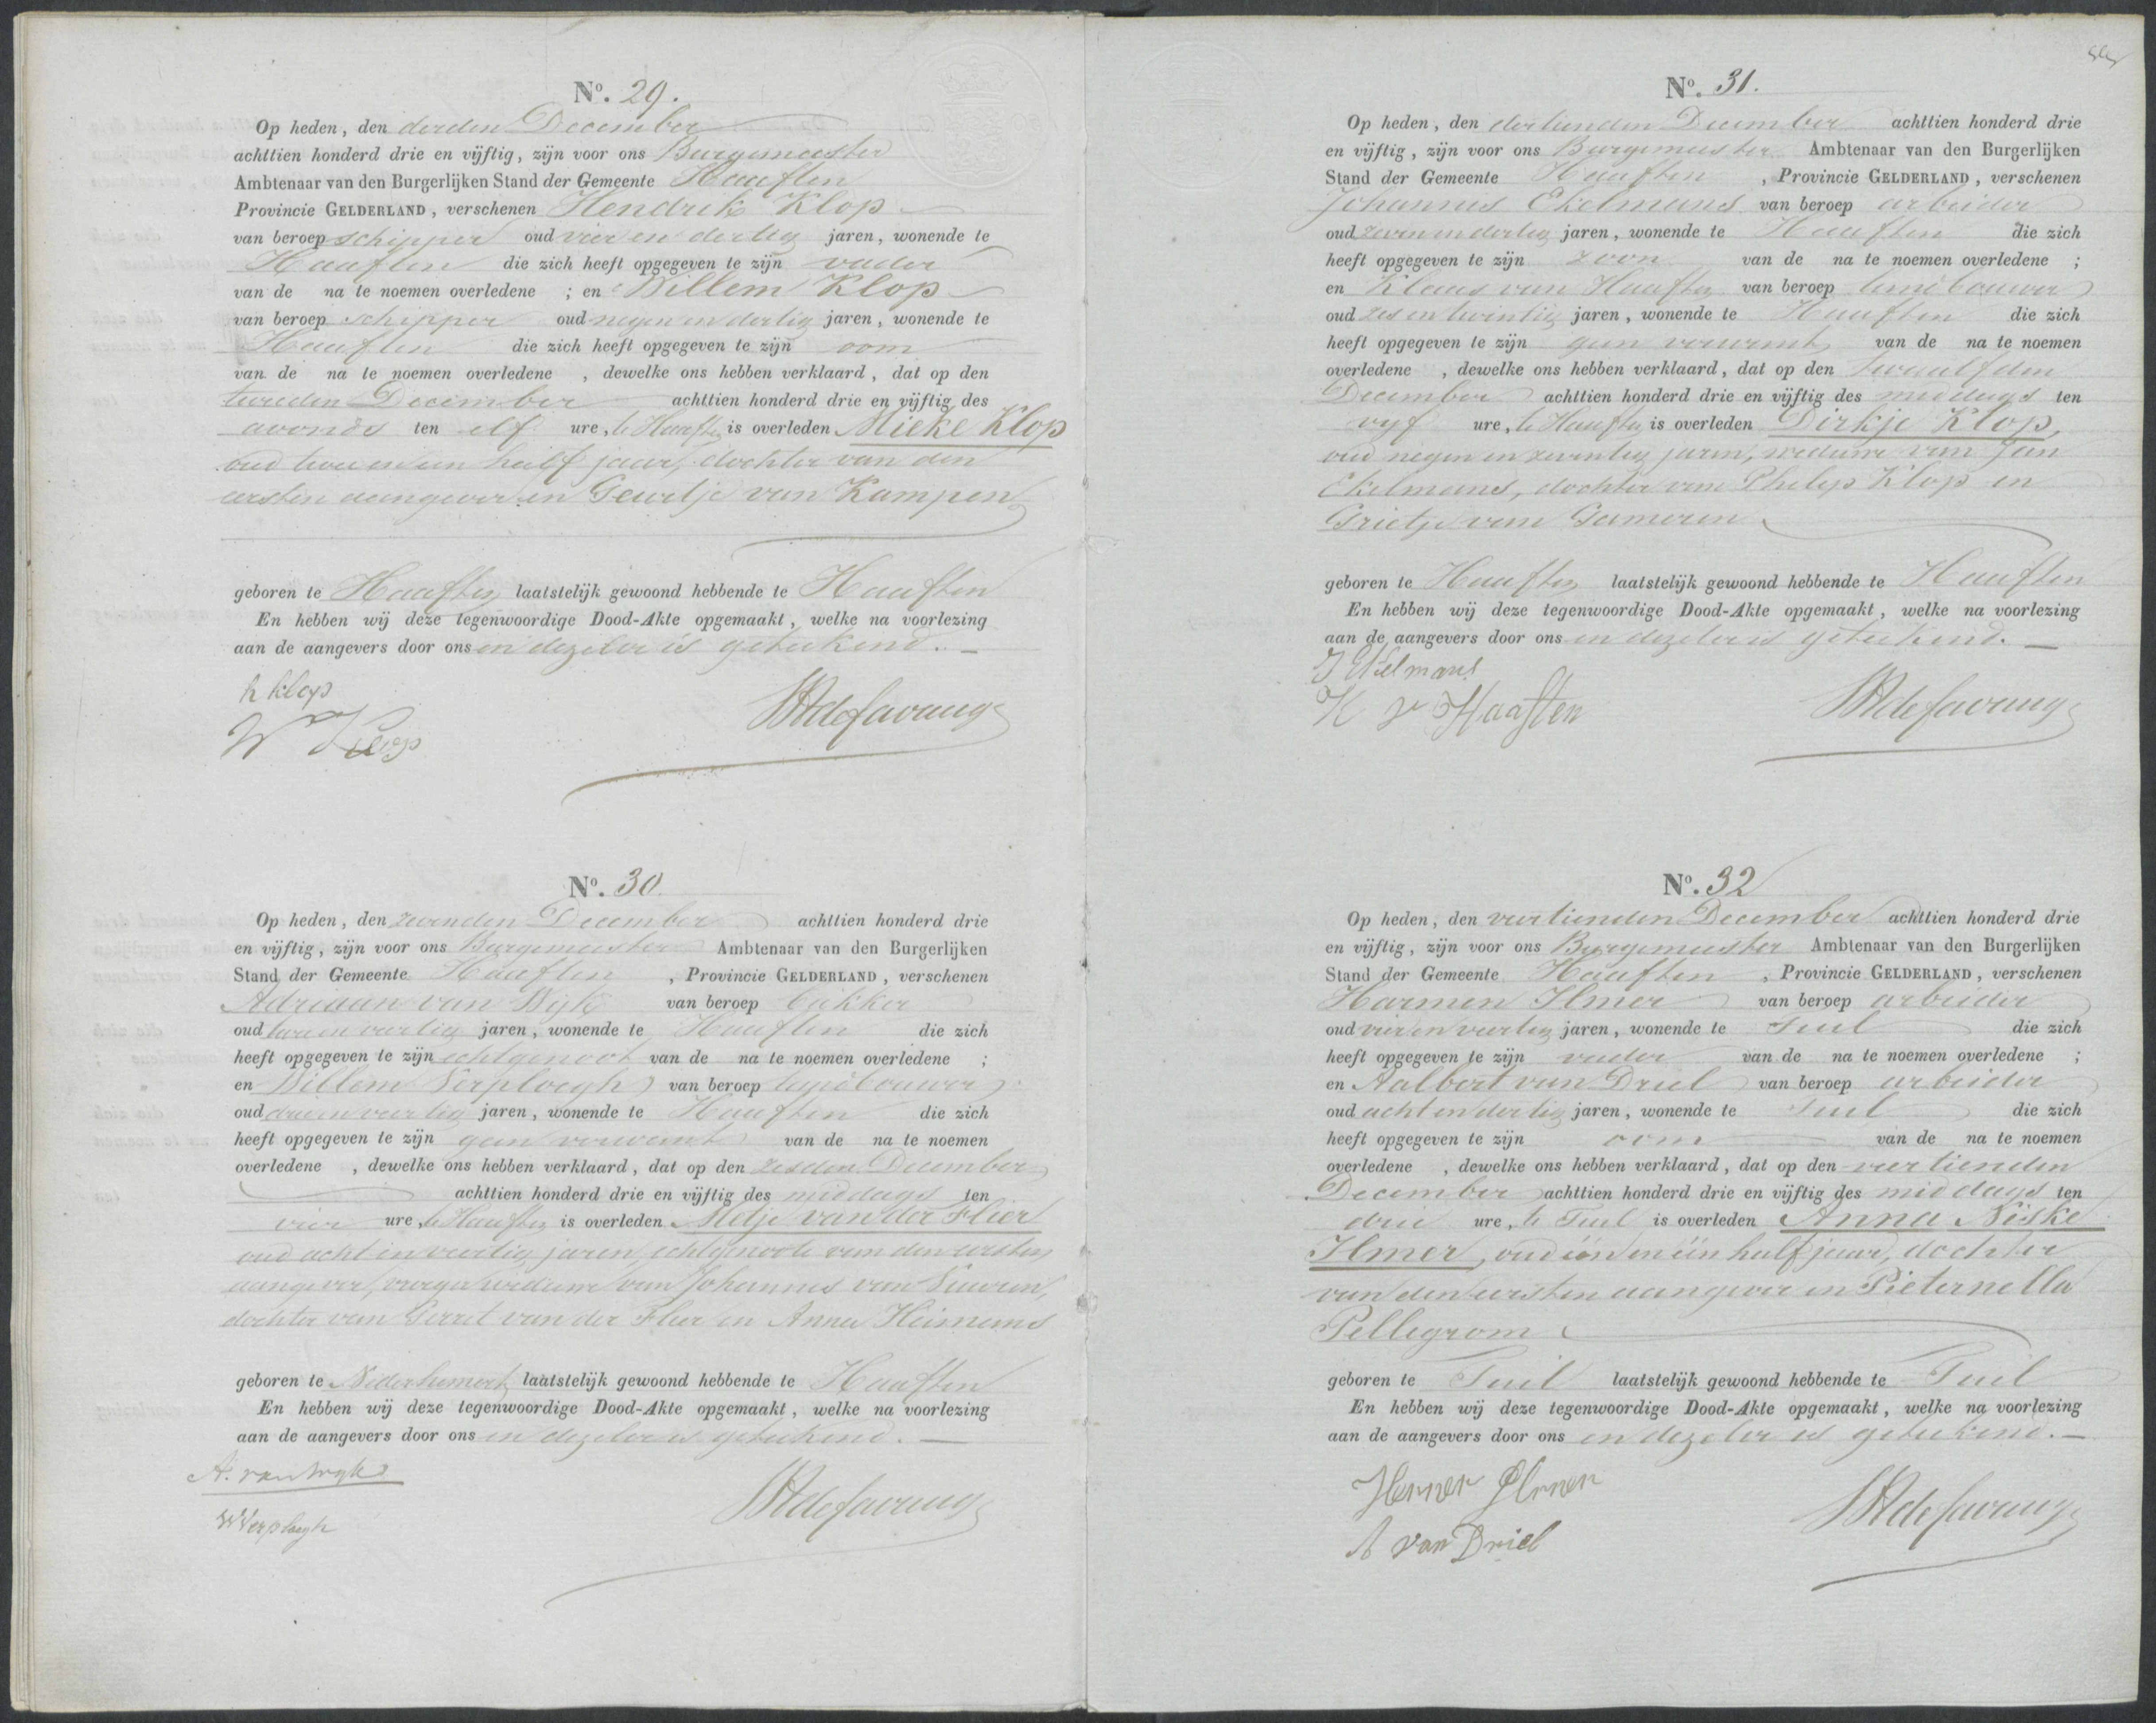 N°. 29.
Op heden, den derden December
achttien honderd drie en vijftig, zijn voor ons Burgemeester
Ambtenaar van den Burgerlijken Stand der Gemeente Haaften
Provincie GELDERLAND, verschenen Hendrik Klop
van beroep schipper oud vier en dertig jaren, wonende te
Haaften die zich heeft opgegeven te zijn vader
van de na te noemen overledene ; en Willem Klop
van beroep schipper oud negen en dertig jaren, wonende te
Haaften die zich heeft opgegeven te zijn oom
van de na te noemen overledene , dewelke ons hebben verklaard, dat op den
tweeden December achttien honderd drie en vijftig des
avonds ten elf ure, te Haaften is overleden Mieke Klop
oud twee en een half jaar, dochter van den
eersten aangever en Geurtje van Kampen
geboren te Haaften laatstelijk gewoond hebbende te Haaften
En hebben wij deze tegenwoordige Dood-Akte opgemaakt, welke na voorlezing
aan de aangevers door ons en dezelve is geteekend.
h klop
W Klop
N°. 30.
Op heden, den zevenden December achttien honderd drie
en vijftig, zijn voor ons Burgemeester Ambtenaar van den Burgerlijken
Stand der Gemeente Haaften , Provincie GELDERLAND, verschenen
Adriaan van Wijk van beroep bakker
oud twee en veertig jaren, wonende te Haaften die zich
heeft opgegeven te zijn echtgenoot van de na te noemen overledene ;
en Willem Verploegh van beroep landbouwer
oud drie en veertig jaren, wonende te Haaften die zich
heeft opgegeven te zijn geen verwant van de na te noemen
overledene , dewelke ons hebben verklaard, dat op den zesden December
achttien honderd drie en vijftig des middags ten
vier ure, te Haaften is overleden Metje van der Flier
oud acht en veertig jaren, echtgenoote van den eersten
aangever, vroeger weduwe van Johannes van Vuuren,
dochter van Gerret van der Flier en Anna Heimans
geboren te Nederhemert laatstelijk gewoond hebbende te Haaften
En hebben wij deze tegenwoordige Dood-Akte opgemaakt, welke na voorlezing
aan de aangevers door ons en dezelve is geteekend.
A. van Wyk
W Verploegh
N°. 31.
Op heden, den dertienden December achttien honderd drie
en vijftig, zijn voor ons Burgemeester Ambtenaar van den Burgerlijken
Stand der Gemeente Haaften , Provincie GELDERLAND, verschenen
Johannes Ekelmans van beroep arbeider
oud zeven en dertig jaren, wonende te Haaften die zich
heeft opgegeven te zijn zoon van de na te noemen overledene ;
en Klaas van Haaften van beroep landbouwer
oud zes en twintig jaren, wonende te Haaften die zich
heeft opgegeven te zijn geen verwant van de na te noemen
overledene , dewelke ons hebben verklaard, dat op den twaalfden
December achttien honderd drie en vijftig des middags ten
vyf ure, te Haaften is overleden Dirkje Klop,
oud negen en zeventig jaren, weduwe van Jan
Ekelmans, dochter van Philip Klop en
Grietje van Gameren
geboren te Haaften laatstelijk gewoond hebbende te Haaften
En hebben wij deze tegenwoordige Dood-Akte opgemaakt, welke na voorlezing
aan de aangevers door ons en dezelve is geteekend.
J Ekelmans
K v Haaften
N°. 32
Op heden, den veertienden December achttien honderd drie
en vijftig, zijn voor ons Burgemeester Ambtenaar van den Burgerlijken
Stand der Gemeente Haaften , Provincie GELDERLAND, verschenen
Harmen Ilmer van beroep arbeider
oud vier en veertig jaren, wonende te Tuil die zich
heeft opgegeven te zijn vader van de na te noemen overledene ;
en Aalbert van Driel van beroep arbeider
oud acht en dertig jaren, wonende te Tuil die zich
heeft opgegeven te zijn oom van de na te noemen
overledene , dewelke ons hebben verklaard, dat op den veertienden
December achttien honderd drie en vijftig des middags ten
drie ure, te Tuil is overleden Anna Niske
Ilmer, oud één en één half jaar, dochter
van den eersten aangever en Pieternella
Pellegrom
geboren te Tuil laatstelijk gewoond hebbende te Tuil
En hebben wij deze tegenwoordige Dood-Akte opgemaakt, welke na voorlezing
aan de aangevers door ons en dezelve is geteekend.
A van Driel